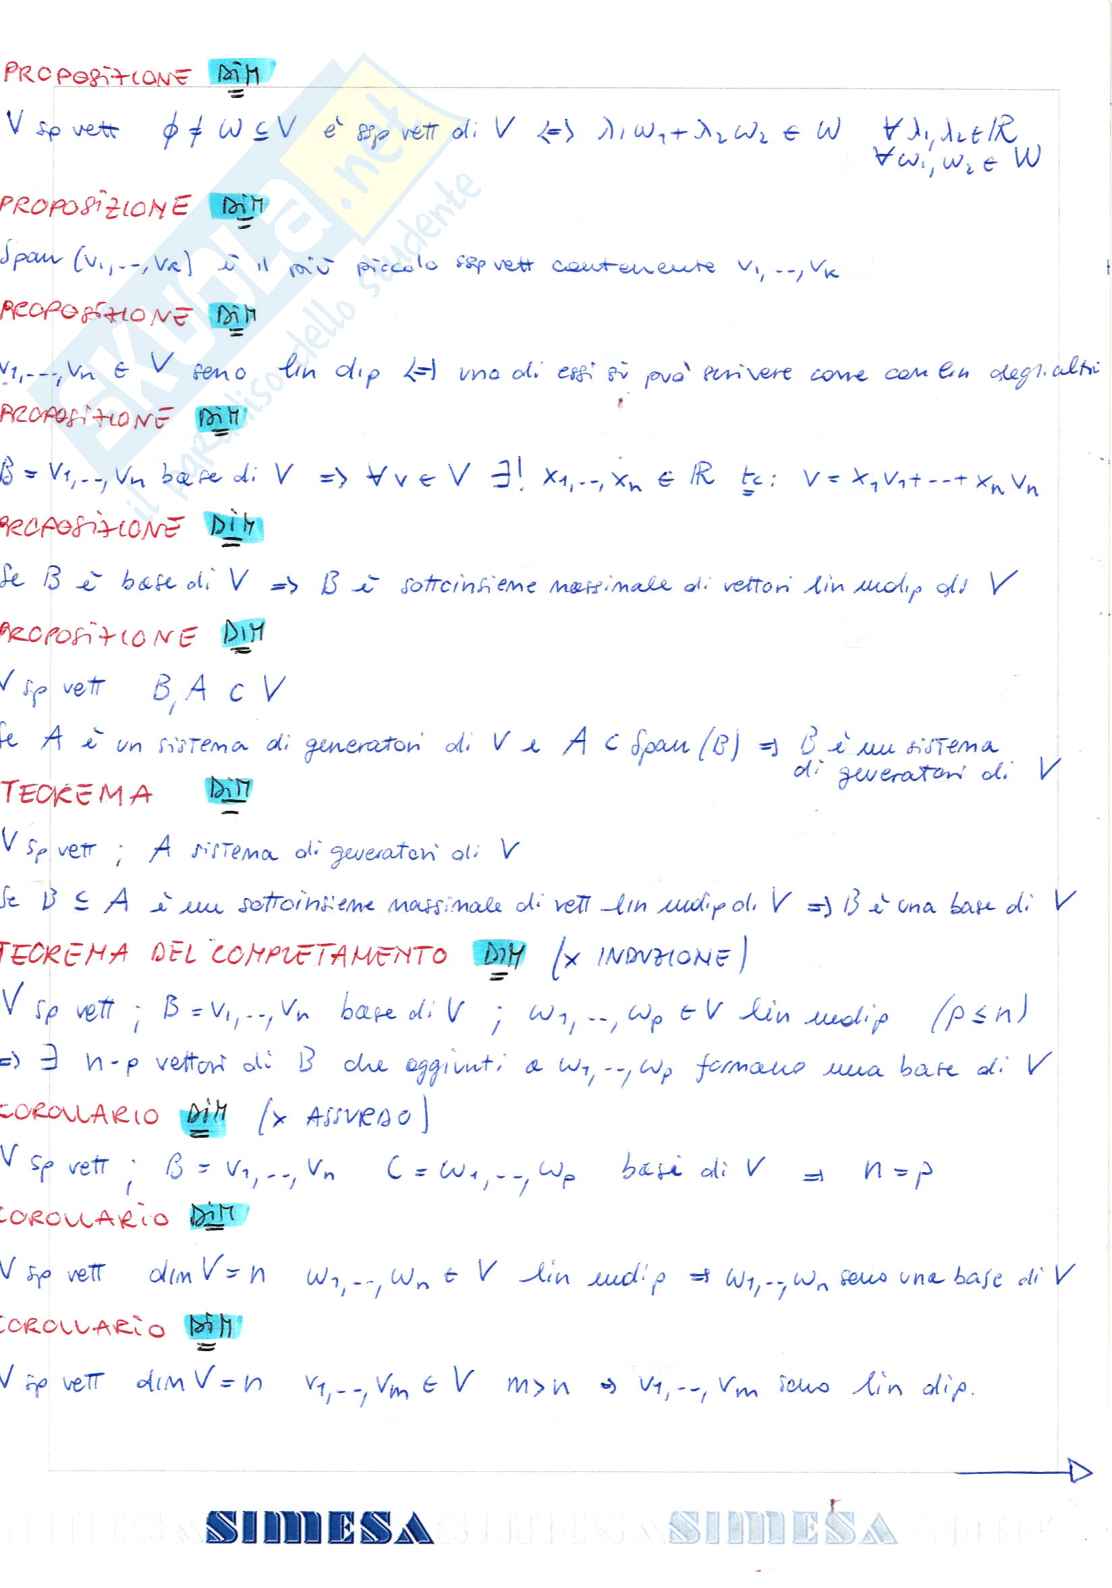 PROPOSIZIONE DIM
V sp vett ϕ ≠ W ⊆ V è ssp vett di V <=> λ₁w₁+λ₂w₂ ∈ W ∀ λ₁,λ₂∈ℝ
∀w₁,w₂ ∈ W
PROPOSIZIONE DIM
Span (v₁,..,vₖ) è il più piccolo ssp vett contenente v₁,..,vₖ
PROPOSIZIONE DIM
v₁,...,vₙ ∈ V sono lin dip <=> uno di essi si può scrivere come con lin degli altri
PROPOSIZIONE DIM
B = v₁,..,vₙ base di V => ∀ v ∈ V ∃! x₁,..,xₙ ∈ ℝ tc: v = x₁v₁+--+xₙvₙ
PROPOSIZIONE DIM
Se B è base di V => B è sottoinsieme massimale di vettori lin indip di V
PROPOSIZIONE DIM
V sp vett B, A ⊂ V
Se A è un sistema di generatori di V e A ⊂ Span(B) => B è un sistema
di generatori di V
TEOREMA DIM
V sp vett ; A sistema di generatori di V
Se B ⊆ A è un sottoinsieme massimale di vett lin indip di V => B è una base di V
TEOREMA DEL COMPLETAMENTO DIM (x INDUZIONE)
V sp vett ; B = v₁,..,vₙ base di V ; w₁,..,wₚ ∈ V lin indip (p ≤ n)
=> ∃ n-p vettori di B che aggiunti a w₁,..,wₚ formano una base di V
COROLLARIO DIM (x ASSURDO)
V sp vett ; B = v₁,..,vₙ C = w₁,..,wₚ basi di V => n = p
COROLLARIO DIM
V sp vett dim V = n w₁,..,wₙ ∈ V lin indip => w₁,..,wₙ sono una base di V
COROLLARIO DIM
V sp vett dim V = n v₁,..,vₘ ∈ V m>n => v₁,..,vₘ sono lin dip.
SIMESA SIMESA
SKUOLA.net
il paradiso dello studente